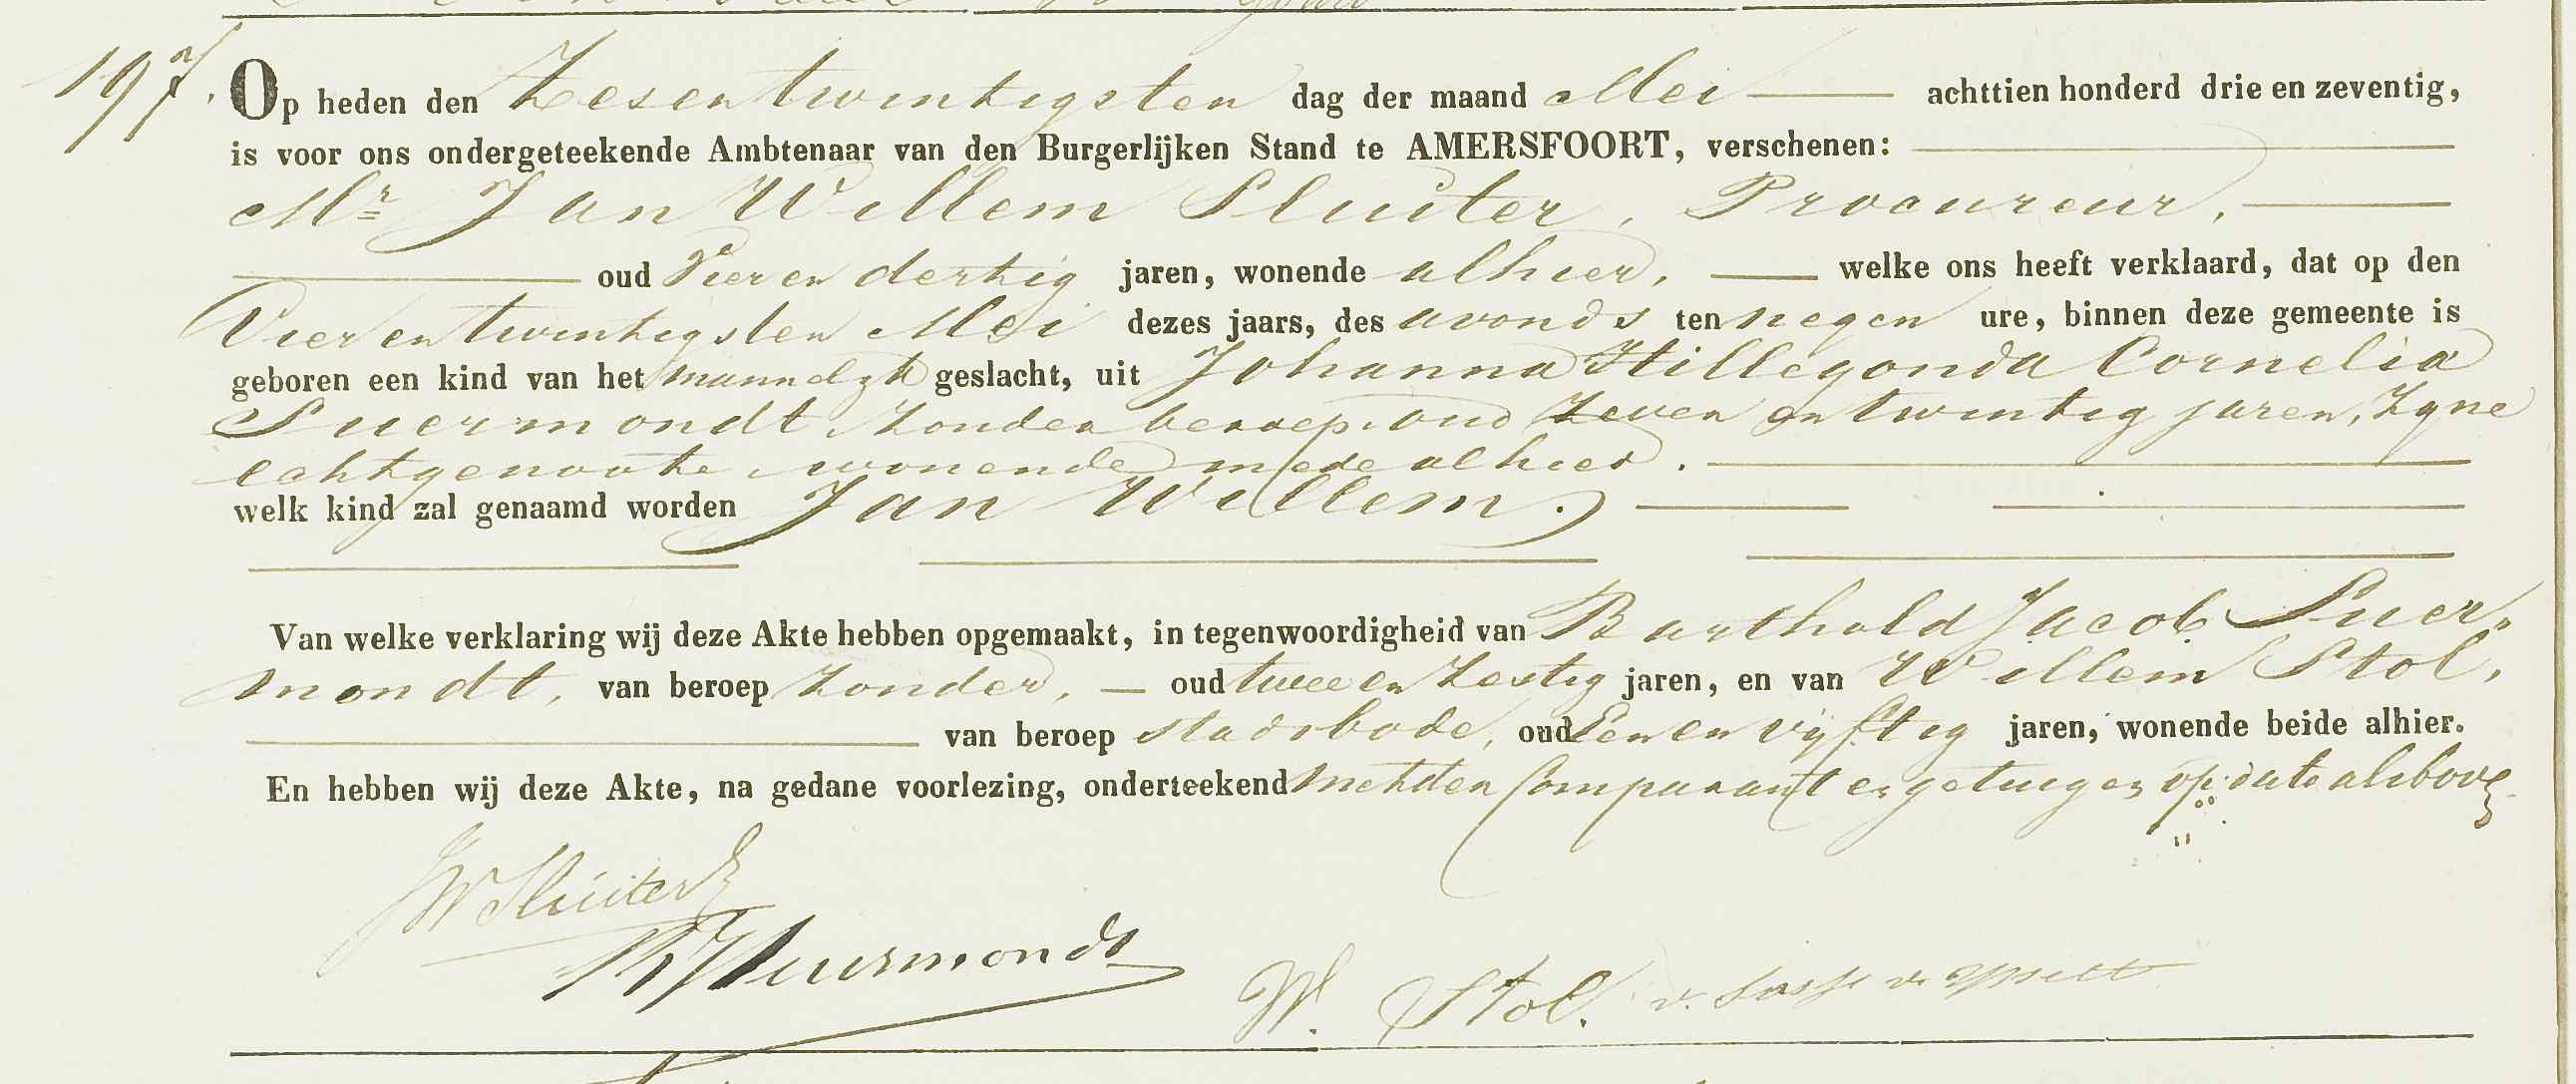 197. Op heden den Zesentwintigsten dag der maand Mei achttien honderd drie en zeventig,
is voor ons ondergeteekende Ambtenaar van den Burgerlijken Stand te AMERSFOORT, verschenen:
Mr Jan Willem Sluiter, Procureur,
oud Vier en dertig jaren, wonende alhier, welke ons heeft verklaard, dat op den
Vier en twintigsten Mei dezes jaars, des avonds ten negen ure, binnen deze gemeente is
geboren een kind van het mannelyk geslacht, uit Johanna Hillegonda Cornelia
Suermondt zonder beroep, oud zeven en twintig jaren, zyne
echtgenoote, wonende mede alhier.
welk kind zal genaamd worden Jan Willem.
Van welke verklaring wij deze Akte hebben opgemaakt, in tegenwoordigheid van Barthold Jacob Suer-
mondt, van beroep zonder, oud twee en zestig jaren, en van Willem Stol,
van beroep stadsbode, oud Een en vyftig jaren, wonende beide alhier.
En hebben wij deze Akte, na gedane voorlezing, onderteekend met den Comparant en getuigen op date alsboven
JW Sluiter
BJ Suermondt
W. Stol. v. Sasse v. Ysselt